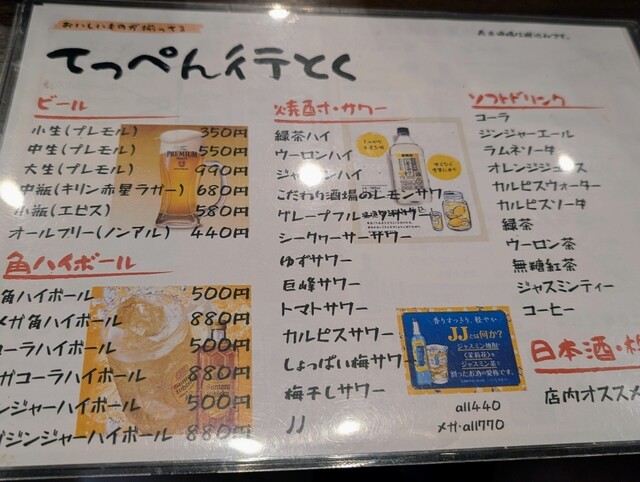 おいしいものが揃ってる
てっぺん行とく
ビール
小生(プレモル) 350円
中生(プレモル) 550円
大生(プレモル) 990円
中瓶(キリン赤星ラガー) 680円
小瓶(エビス) 580円
オールフリー(ノンアル) 440円
PREMIUM
角ハイボール
角ハイボール 500円
メガ角ハイボール 880円
コーラハイボール 500円
ガコーラハイボール 880円
ンジャーハイボール 500円
ガジンジャーハイボール 880円
焼酎・サワー
緑茶ハイ
ウーロンハイ
ジャスミンハイ
こだわり酒場のレモンサワー
グレープフルーツサワー
シークワーサーサワー
ゆずサワー
巨峰サワー
トマトサワー
カルピスサワー
しょっぱい梅サワー
梅干しサワー
JJ
香りすっきり、軽やか
JJとは何か?
ジャスミン焼酎
<茉莉花>を
ジャスミン茶で
割ったお酒の愛称です。
all440
メガ・all770
ソフトドリンク
コーラ
ジンジャーエール
ラムネソーダ
オレンジジュース
カルピスウォーター
カルピスソーダ
緑茶
ウーロン茶
無糖紅茶
ジャスミンティー
コーヒー
日本酒・
店内オススメ